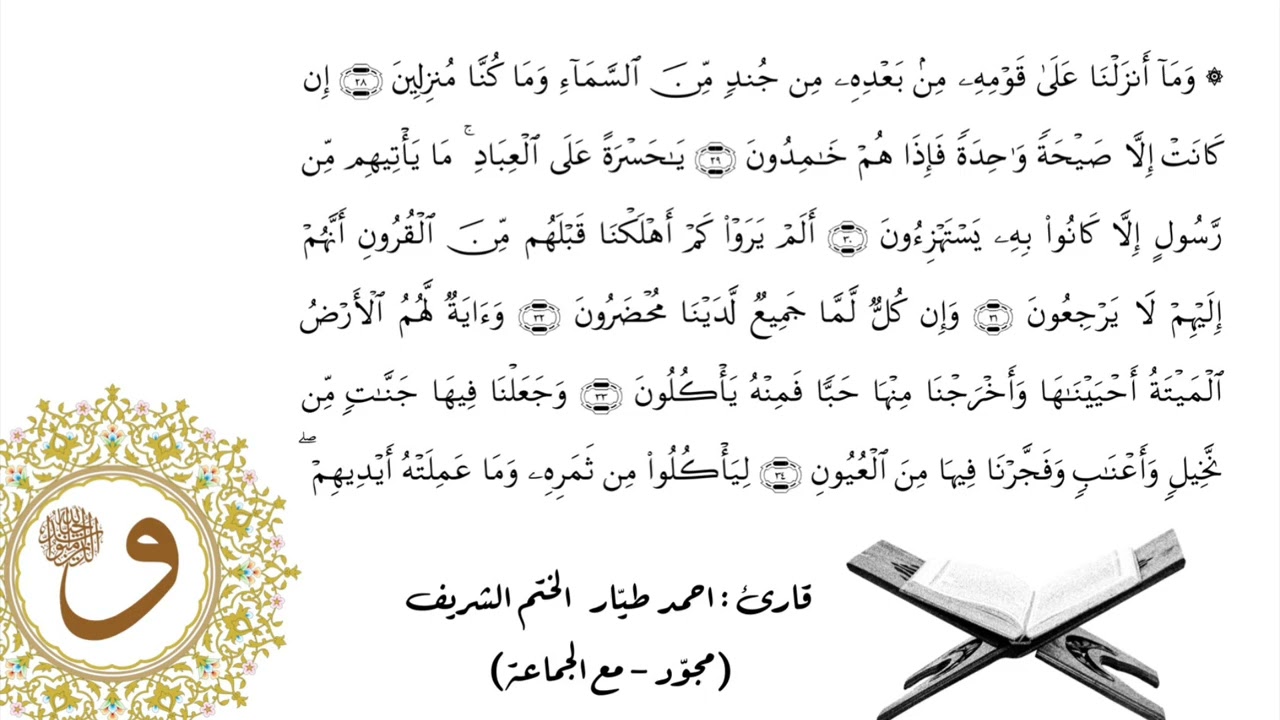 ۞ وَمَآ أَنزَلْنَا عَلَىٰ قَوْمِهِۦ مِنۢ بَعْدِهِۦ مِن جُندٍ مِّنَ ٱلسَّمَآءِ وَمَا كُنَّا مُنزِلِينَ ٢٨ إِن
كَانَتْ إِلَّا صَيْحَةً وَٰحِدَةً فَإِذَا هُمْ خَـٰمِدُونَ ٢٩ يَـٰحَسْرَةً عَلَى ٱلْعِبَادِ ۚ مَا يَأْتِيهِم مِّن
رَّسُولٍ إِلَّا كَانُوا۟ بِهِۦ يَسْتَهْزِءُونَ ٣٠ أَلَمْ يَرَوْا۟ كَمْ أَهْلَكْنَا قَبْلَهُم مِّنَ ٱلْقُرُونِ أَنَّهُمْ
إِلَيْهِمْ لَا يَرْجِعُونَ ٣١ وَإِن كُلٌّ لَّمَّا جَمِيعٌ لَّدَيْنَا مُحْضَرُونَ ٣٢ وَءَايَةٌ لَّهُمُ ٱلْأَرْضُ
ٱلْمَيْتَةُ أَحْيَيْنَـٰهَا وَأَخْرَجْنَا مِنْهَا حَبًّا فَمِنْهُ يَأْكُلُونَ ٣٣ وَجَعَلْنَا فِيهَا جَنَّـٰتٍ مِّن
نَّخِيلٍ وَأَعْنَـٰبٍ وَفَجَّرْنَا فِيهَا مِنَ ٱلْعُيُونِ ٣٤ لِيَأْكُلُوا۟ مِن ثَمَرِهِۦ وَمَا عَمِلَتْهُ أَيْدِيهِمْ ۖ
قارئ : احمد طيّار الختم الشريف
(مجوّد - مع الجماعة)
و